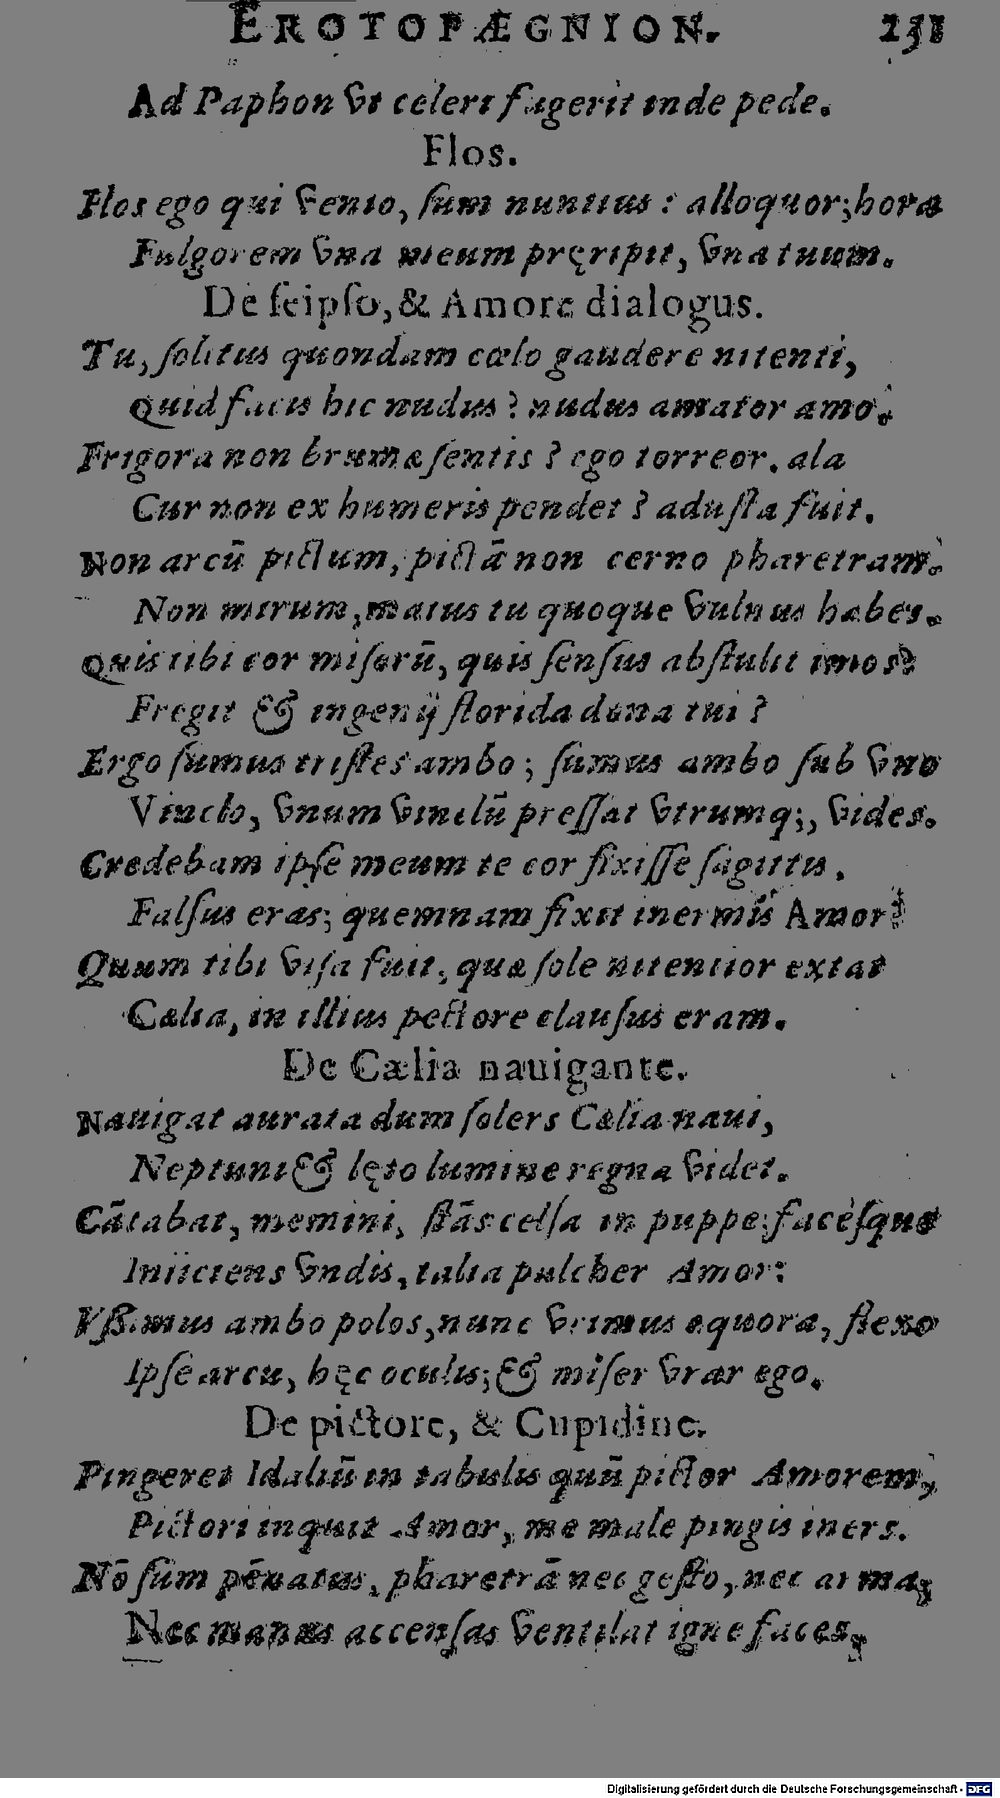 EROTOPÆGNION. 231
Ad Paphon vt celeri fugerit inde pede.
Flos.
Flos ego qui vento, ſum nuntius : alloquor; hora
Fulgorem vna meum pręripit, vna tuum.
De ſeipſo, & Amore dialogus.
Tu, ſolitus quondam cœlo gaudere nitenti,
Quid facis hic nudus ? nudus amator amo.
Frigora non brumæ ſentis ? ego torreor. ala
Cur non ex humeris pendet ? aduſta fuit.
Non arcū pictum, pictā non cerno pharetram.
Non mirum, maius tu quoque vulnus habes.
Quis tibi cor miſerū, quis ſenſus abſtulit imos?
Fregit & ingenij florida dona tui ?
Ergo ſumus triſtes ambo ; ſumus ambo ſub vno
Vinclo, vnum vinclū preſſat vtrumq;, vides.
Credebam ipſe meum te cor fixiſſe ſagittis.
Falſus eras; quemnam fixit inermis Amor?
Quum tibi viſa fuit, quæ ſole nitentior extat
Cælia, in illius pectore clauſus eram.
De Cælia nauigante.
Nauigat aurata dum ſolers Cælia naui,
Neptuni & lęto lumine regna videt.
Cātabat, memini, ſtās celſa in puppe: faceſque
Iniiciens vndis, talia pulcher Amor:
Vßimus ambo polos, nunc vrimus æquora, flexo
Ipſe arcu, hęc oculis; & miſer vrar ego.
De pictore, & Cupidine.
Pingeret Idaliū in tabulis quū pictor Amorem,
Pictori inquit Amor, me male pingis iners.
Nō ſum pēnatus, pharetrā nec geſto, nec arma,
Nec manus accenſas ventilat igne faces,
Digitalisierung gefördert durch die Deutsche Forschungsgemeinschaft - DFG